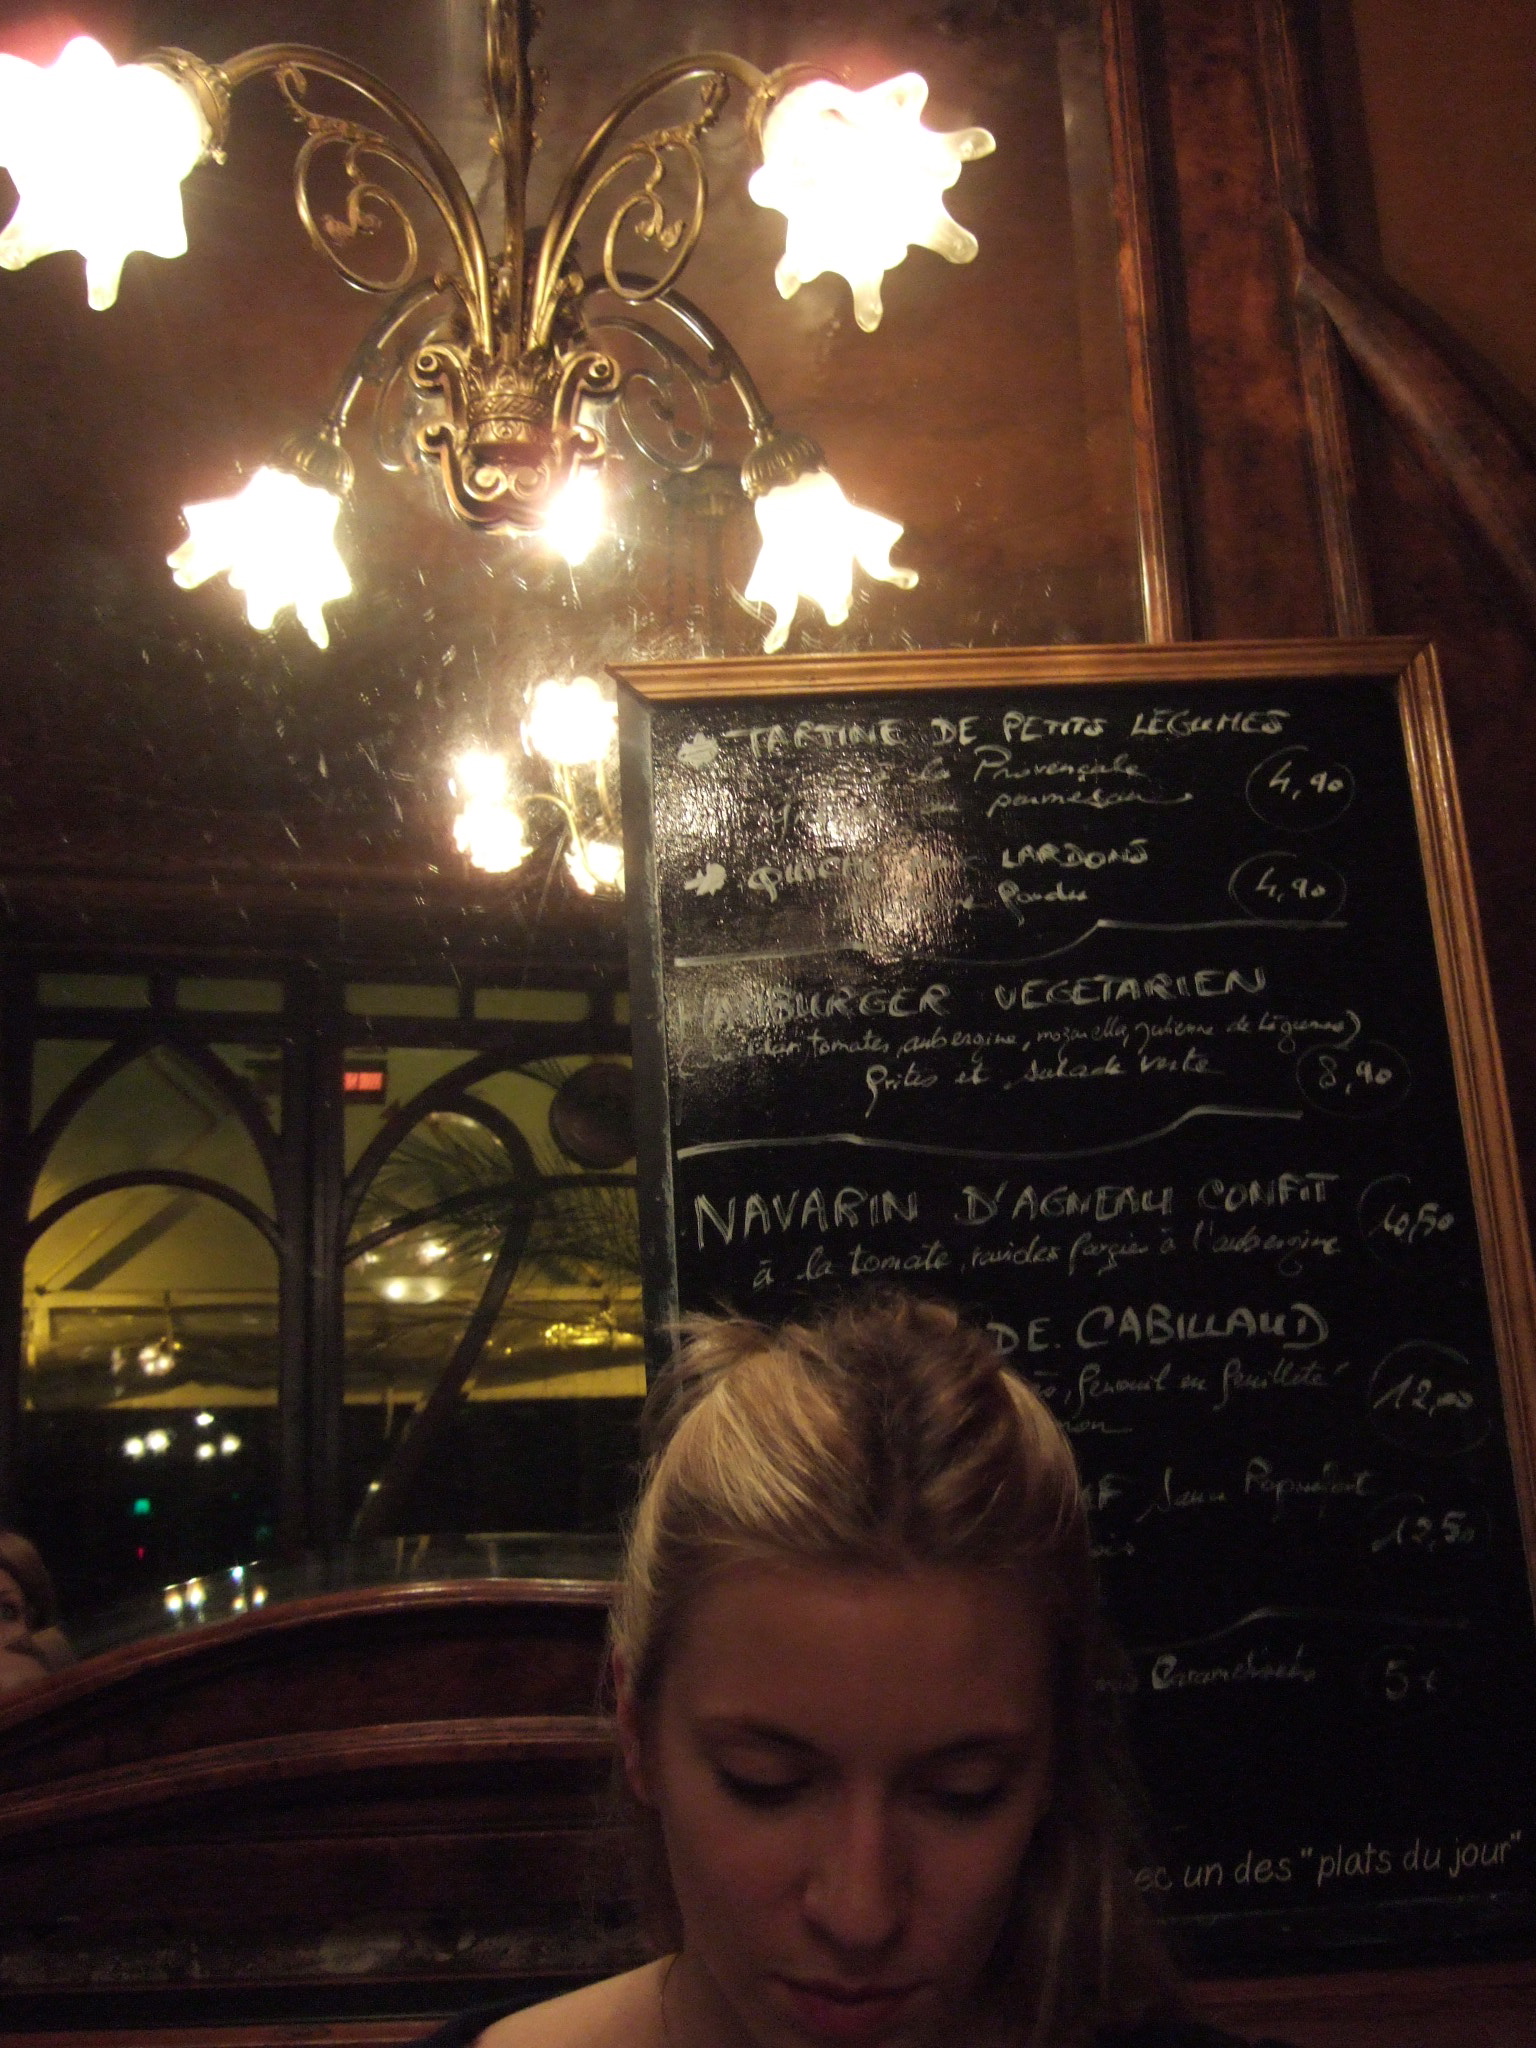 TARTINE DE PETITS LÉGUMES
à la Provençale
parmesan
4,90
QUICHE AUX LARDONS
fondu
4,90
HAMBURGER VEGETARIEN
tomates, aubergine, mozarella, julienne de légumes)
frites et salade verte
8,90
NAVARIN D'AGNEAU CONFIT
à la tomate, ravioles farçies à l'aubergine
10,50
DE CABILLAUD
fenouil en feuilleté
12,00
12,50
Caramélisés 5
un des "plats du jour"